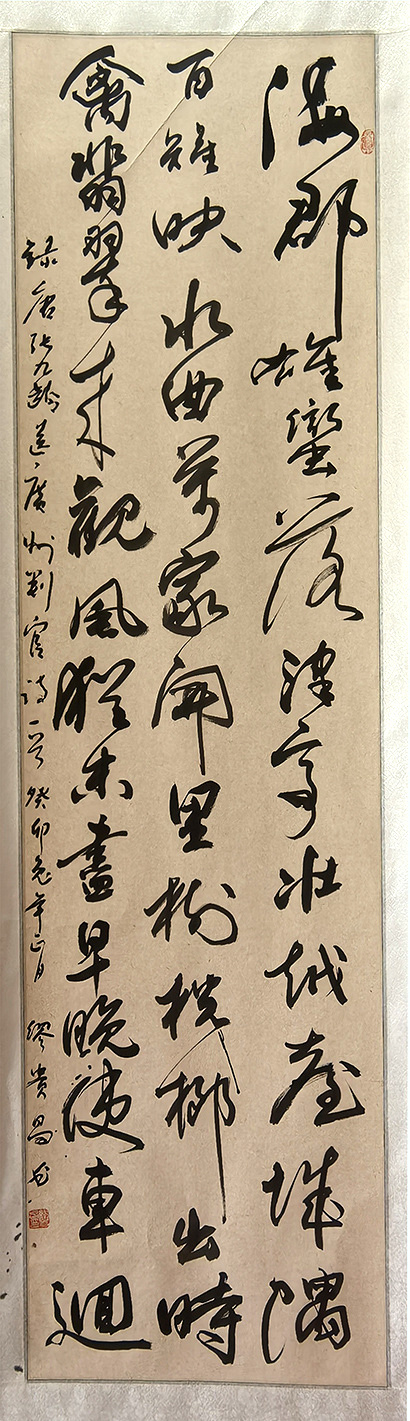 海郡雄蠻落津亭壯越臺城隅
百雉映水曲萬家開里樹桄榔出時
禽翡翠來觀風猶未盡早晚使車迴
錄唐張九齡送廣州判官詩一首癸卯兔年正月繆貴昌书